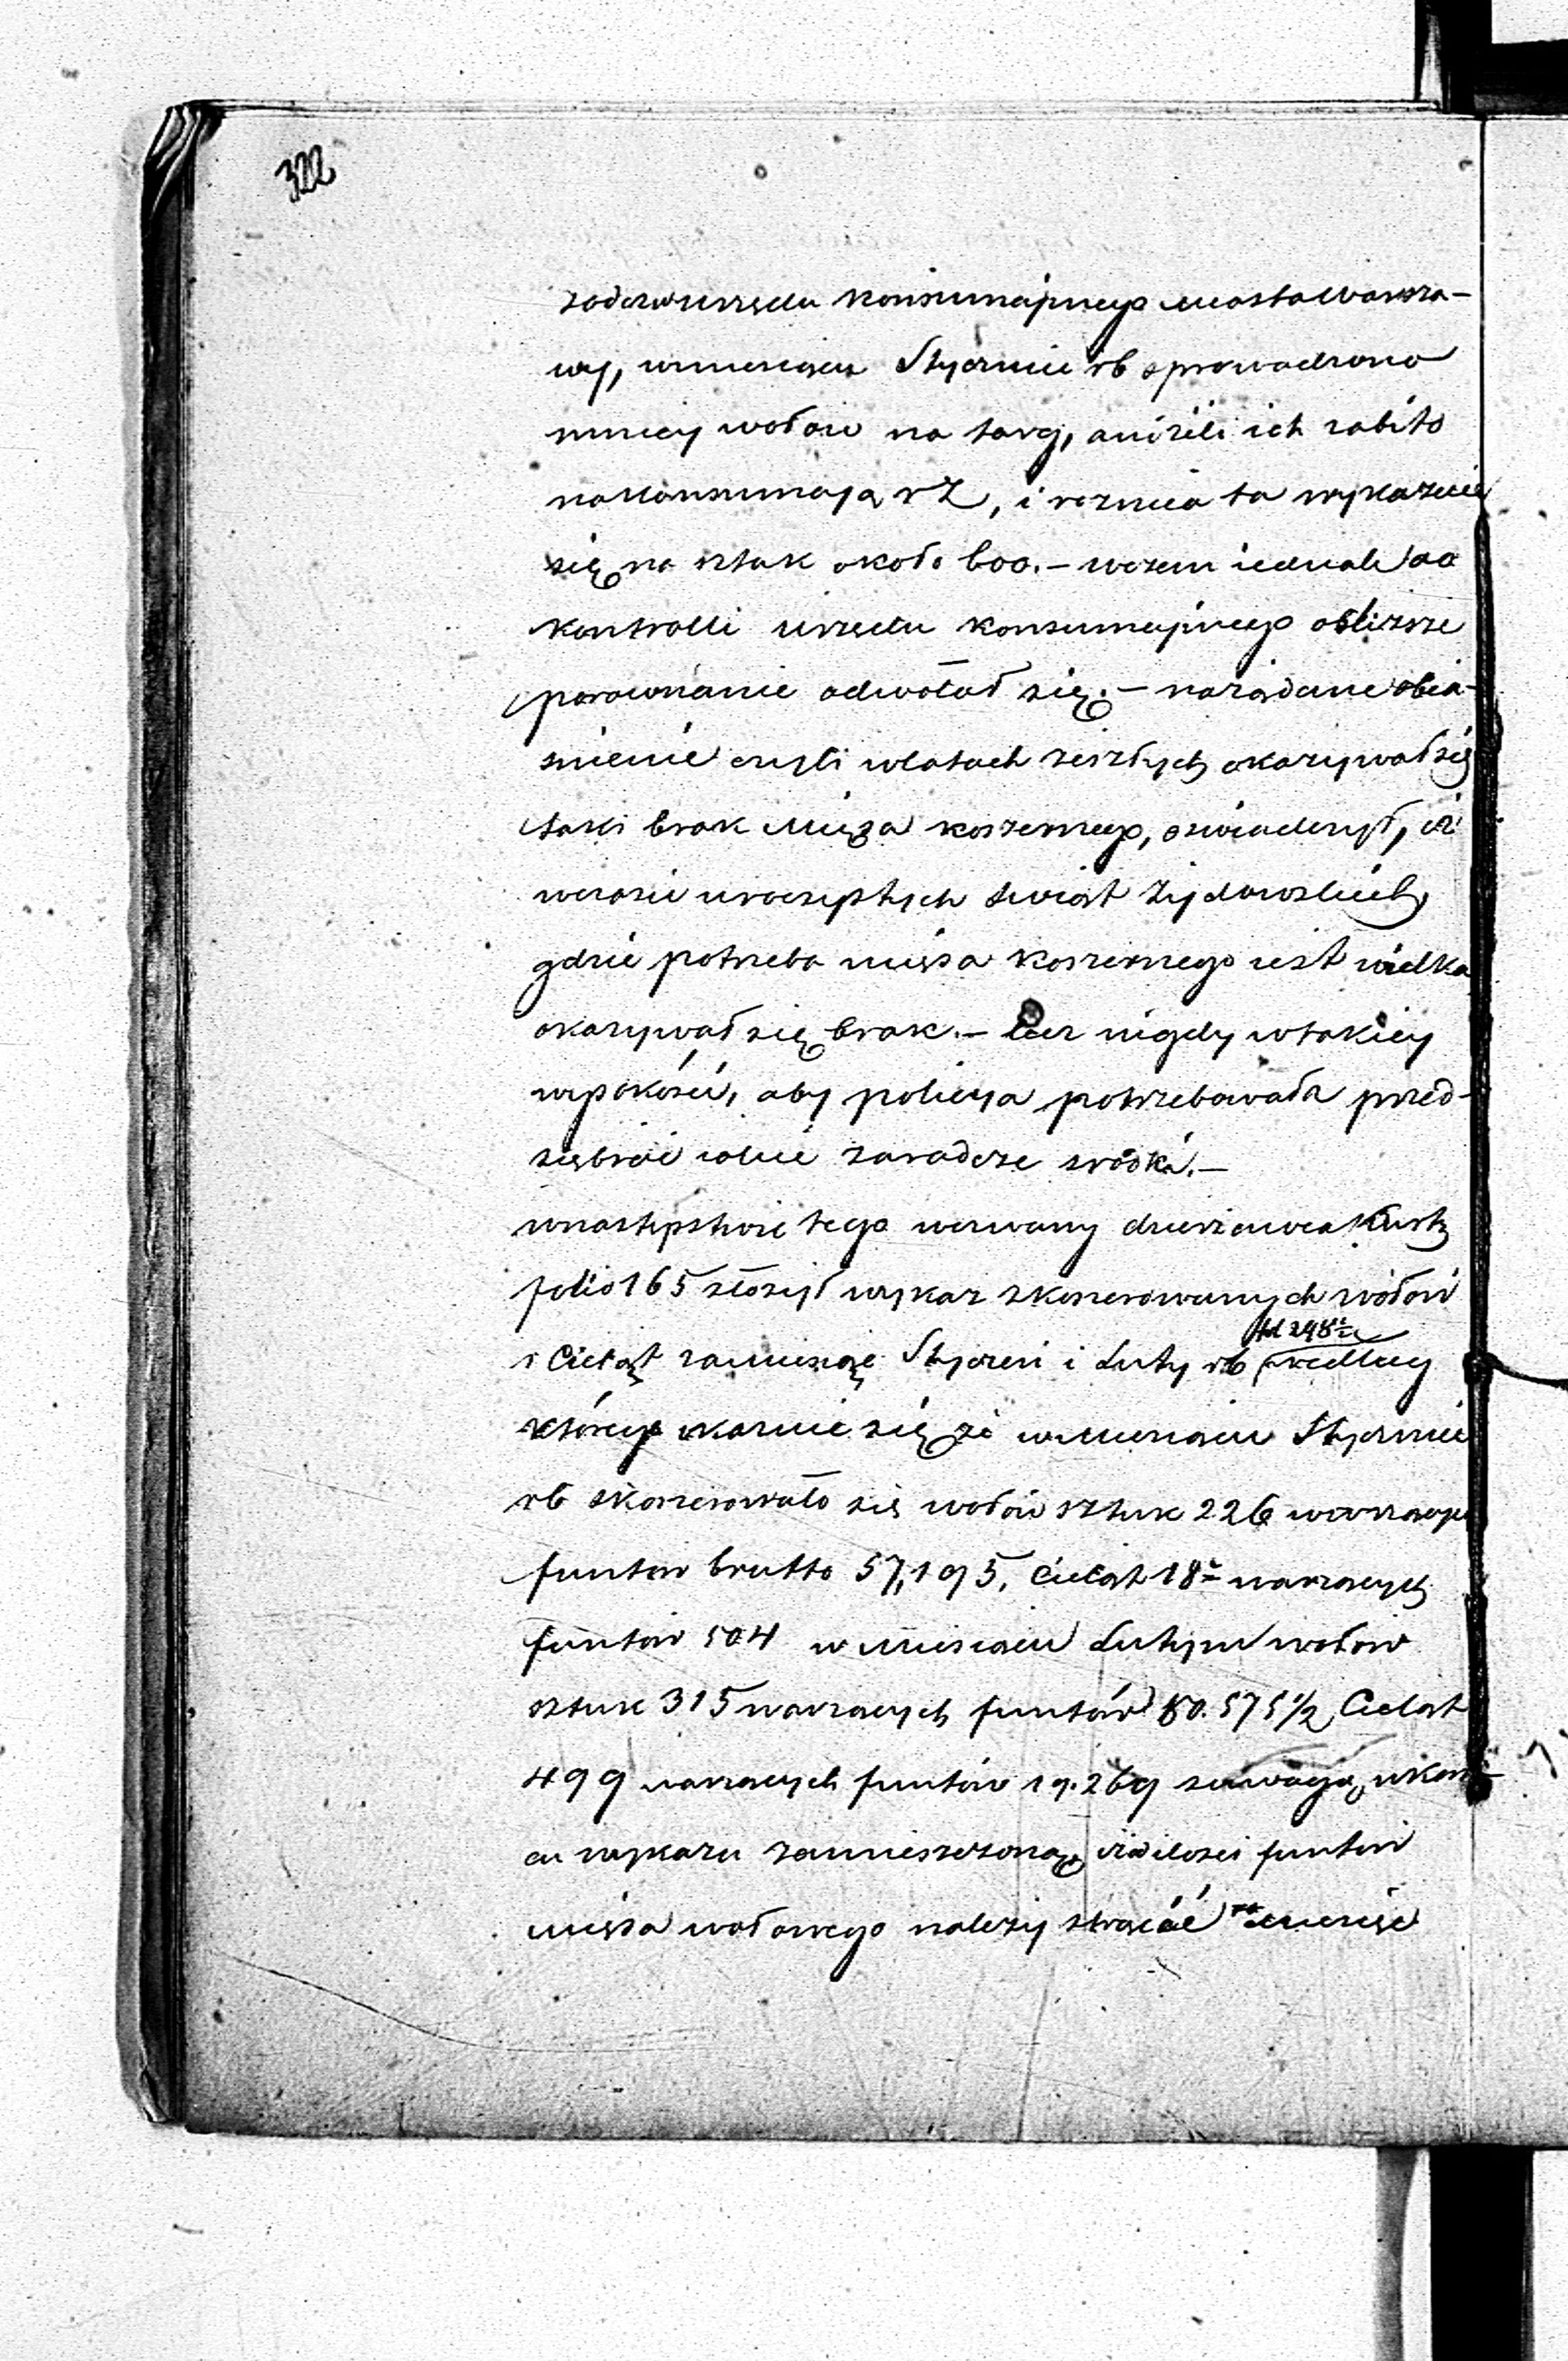 322
urzędu konsumcyjnego miasta Warsza-
wy, w miesiącu Styczniu rb sprowadzono
mniey wołow na targ, aniżeli ich zabito
na konsumcyą rZ, i roznica ta wykazuie
się na sztuk około 600. – wszem iednak do
kontrolli urzędu konsumcyinego o bliższe
porownanie odwołał się. – na żądane obia-
snienie czyli w latach zeszłych okazywał się
taki brak mięsa koszernego, oswiadczył, iż
w czasie uroczystych swiąt żydowskich,
gdzie potrzeba mięsa koszernego iest wielka
okazywał się brak. – lecz nigdy w takiey
wysokości, aby policya potrzebowała przed-
sięwziąć iakie zaradcze srodki. –
w nastepstwie tego wezwany dzierzawca
folio 165 złożył wykaz skoszerowanych wołow
i Cieląt za miesiąc Styczeń i Luty rb podług
fol 248
którego okazuie się że w miesiącu Styczniu
rb skoszerowało się wołow sztuk 226 ważących
funtow brutto 57,195, Cieląt 18 ważących
funtow 504 w miesiącu Lutym wołow
sztuk 315 ważących funtów 80.575 1/2 Cieląt
499 ważących funtów 19.269 z uwagą w koń-
cu wykazu zamieszczoną, iż z ilosci funtow
mięsa wołowego nalezy strącić na